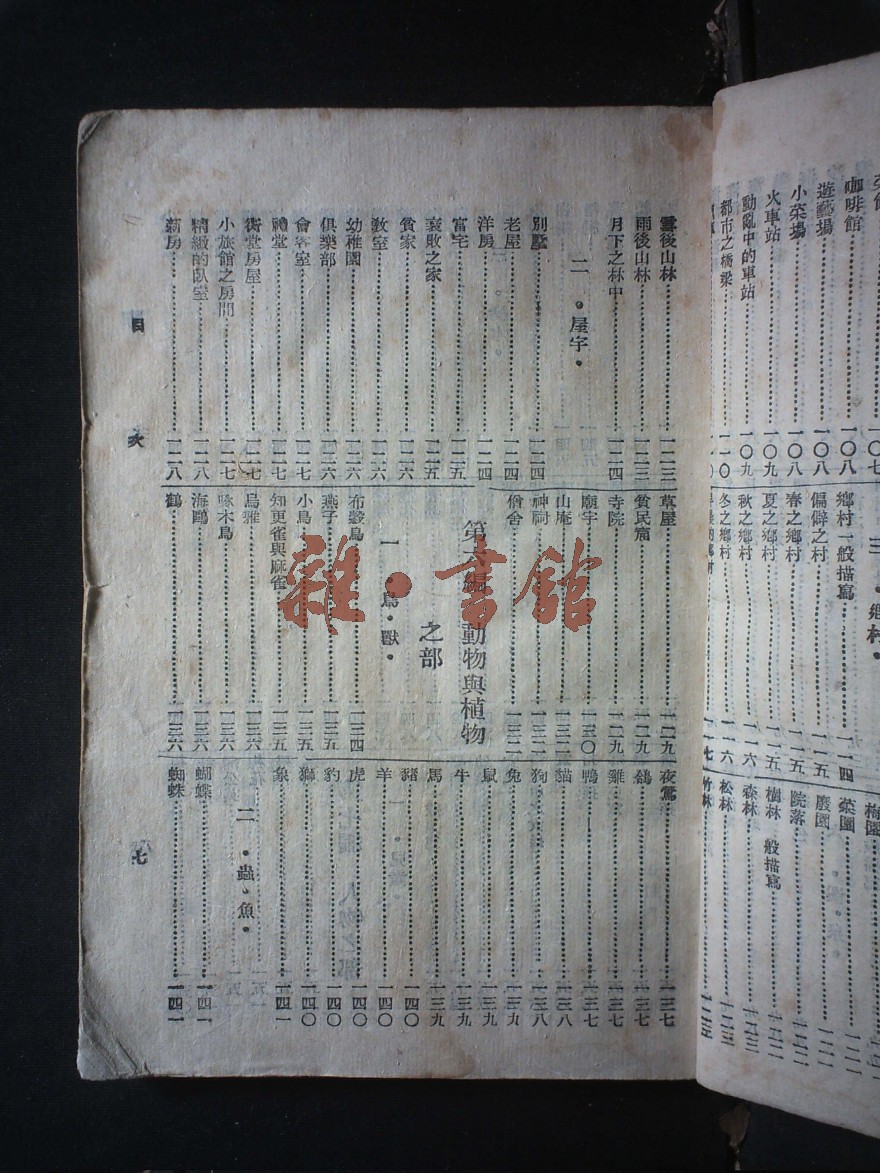 菜館⋯⋯一〇七
咖啡館⋯⋯一〇八
遊藝場⋯⋯一〇八
小菜場⋯⋯一〇八
火車站⋯⋯一〇九
動亂中的車站⋯⋯一〇九
都市之橋梁⋯⋯一一〇
三 •鄉村•
鄉村一般描寫⋯⋯一一四
偏僻之村⋯⋯一一五
春之鄉村⋯⋯一一五
夏之鄉村⋯⋯一一五
秋之鄉村⋯⋯一一六
冬之鄉村⋯⋯一一六
梅園
菜園⋯⋯一二一
廢園⋯⋯一二一
院落⋯⋯一二二
樹林一般描寫⋯⋯一二二
森林⋯⋯一二二
松林⋯⋯一二三
竹林⋯⋯一二三
雪後山林⋯⋯一二三
雨後山林⋯⋯一二三
月下之林中⋯⋯一二四
二 •屋宇•
別墅⋯⋯一二四
老屋⋯⋯一二四
洋房⋯⋯一二四
富宅⋯⋯一二五
衰敗之家⋯⋯一二五
貧家⋯⋯一二六
教室⋯⋯一二六
幼稚園⋯⋯一二六
俱樂部⋯⋯一二六
會客室⋯⋯一二七
禮堂⋯⋯一二七
衖堂房屋⋯⋯一二七
小旅館之房間⋯⋯一二七
精緻的臥室⋯⋯一二八
新房⋯⋯一二八
草屋⋯⋯一二九
貧民窟⋯⋯一二九
寺院⋯⋯一二九
廟宇⋯⋯一三〇
山庵⋯⋯一三二
神祠⋯⋯一三二
僧舍⋯⋯一三二
第六編 動物與植物
之部
一 •鳥•獸•
布穀鳥⋯⋯一三四
燕子⋯⋯一三五
小鳥⋯⋯一三五
知更雀與麻雀⋯⋯一三五
烏鴉⋯⋯一三六
啄木鳥⋯⋯一三六
海鷗⋯⋯一三六
鶴⋯⋯一三六
夜鶯⋯⋯一三七
鷄⋯⋯一三七
鴨⋯⋯一三七
貓⋯⋯一三八
狗⋯⋯一三八
兔⋯⋯一三九
鼠⋯⋯一三九
牛⋯⋯一三九
馬⋯⋯一三九
豬⋯⋯一四〇
羊⋯⋯一四〇
虎⋯⋯一四〇
豹⋯⋯一四〇
獅⋯⋯一四〇
象⋯⋯一四一
二 •蟲•魚•
蝴蝶⋯⋯一四一
蜘蛛⋯⋯一四一
目次
七
雜·書館